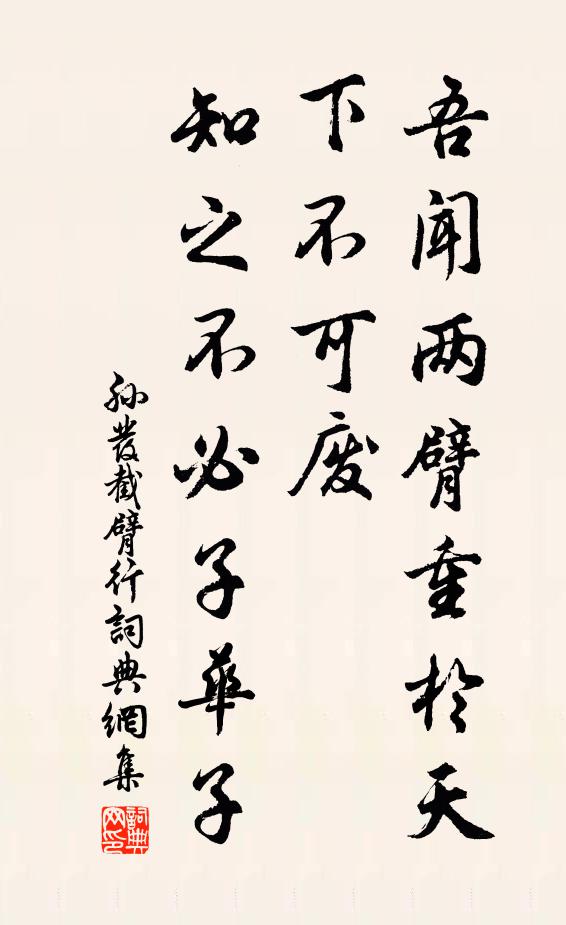 吾闻两臂重於天
下不可废
知之不必子華子
孙發截臂行詞典網集
詞典网印